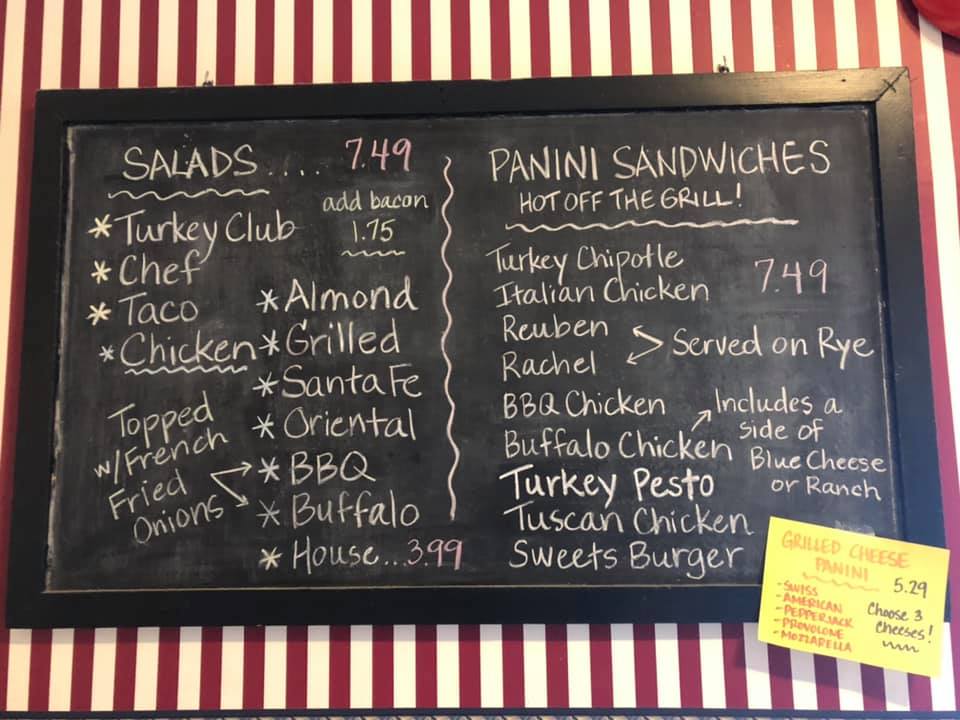 SALADS..... 7.49
add bacon
1.75
* Turkey Club
* Chef
* Taco
* Chicken
* Almond
* Grilled
* Santa Fe
* Oriental
* BBQ
* Buffalo
Topped
w/French
Fried
Onions
* House...3.99
PANINI SANDWICHES
HOT OFF THE GRILL!
7.49
Turkey Chipotle
Italian Chicken
Reuben
Rachel
Served on Rye
BBQ Chicken
Buffalo Chicken
Includes a
side of
Blue Cheese
or Ranch
Turkey Pesto
Tuscan Chicken
Sweets Burger
GRILLED CHEESE
PANINI
5.29
-SWISS
-AMERICAN
-PEPPERJACK
-PROVOLONE
-MOZZARELLA
Choose 3
Cheeses!